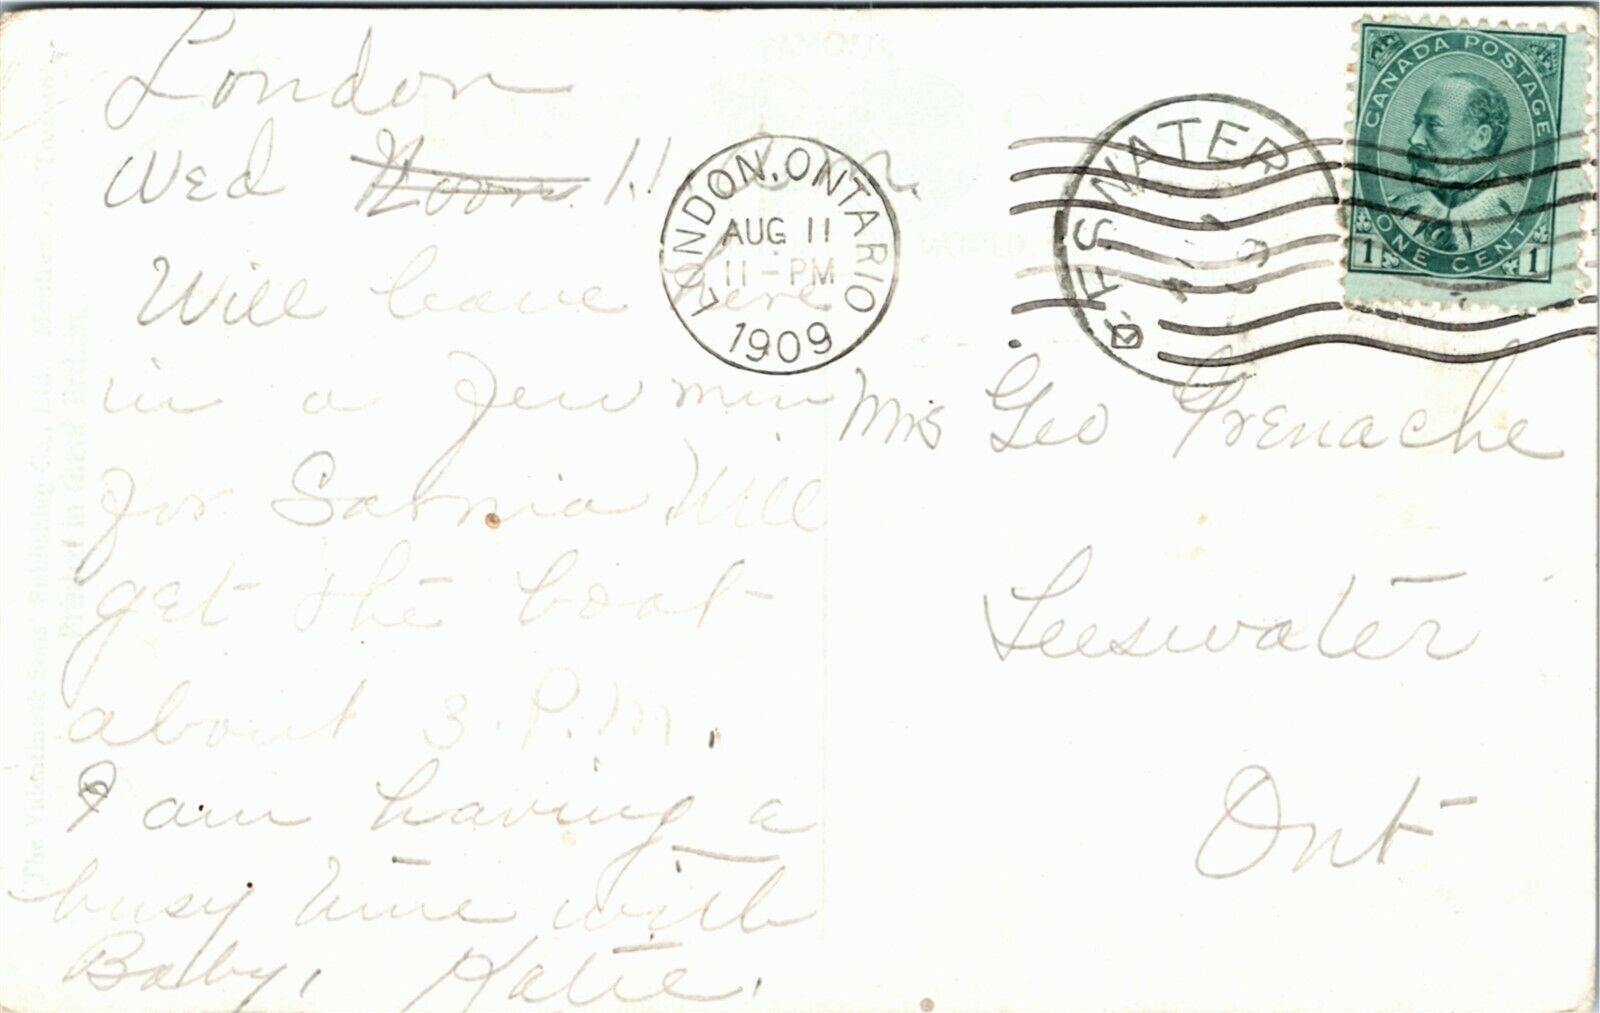 London
Wed Noon 11 a.m.
Will leave here
in a few min
for Sarnia Will
get the boat
about 3. P.M.
I am having a
busy time with
Baby, Katie.
LONDON, ONTARIO
AUG 11
11-PM
1909
WATER
CANADA POSTAGE
1 ONE CENT 1
Mrs Geo Grenache
Teeswater
Ont
The Valentine & Sons' Publishing Co., Ltd. Montreal and Toronto
Printed in Great Britain.
FAMOUS
WORLD